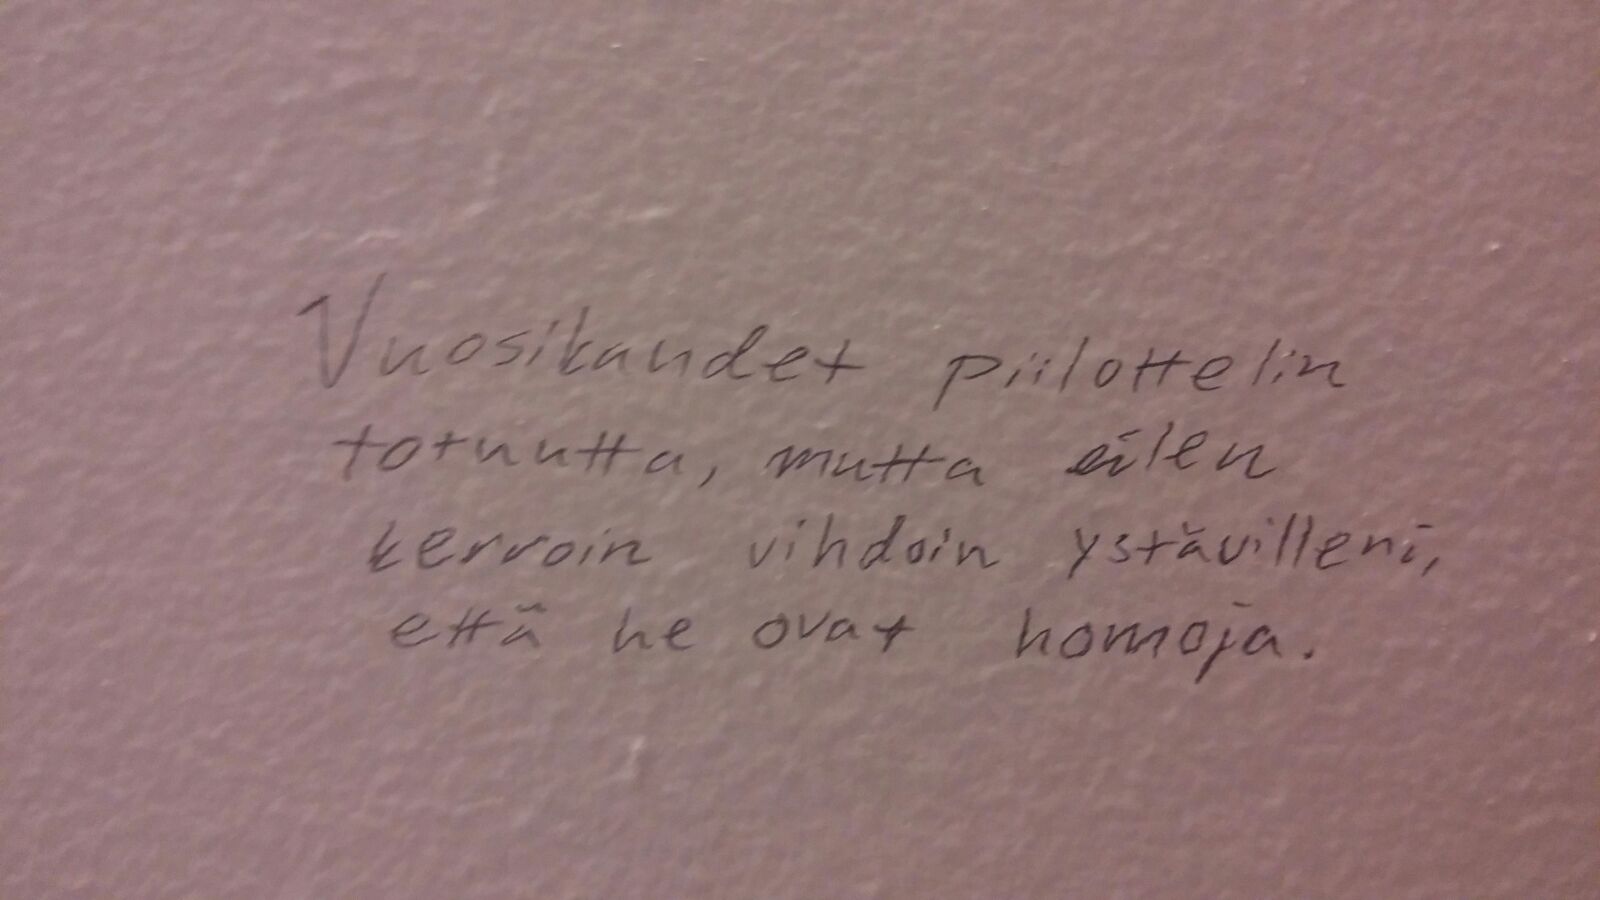 Vuosikaudet piilottelin
totuutta, mutta eilen
kerroin vihdoin ystävilleni,
että he ovat homoja.